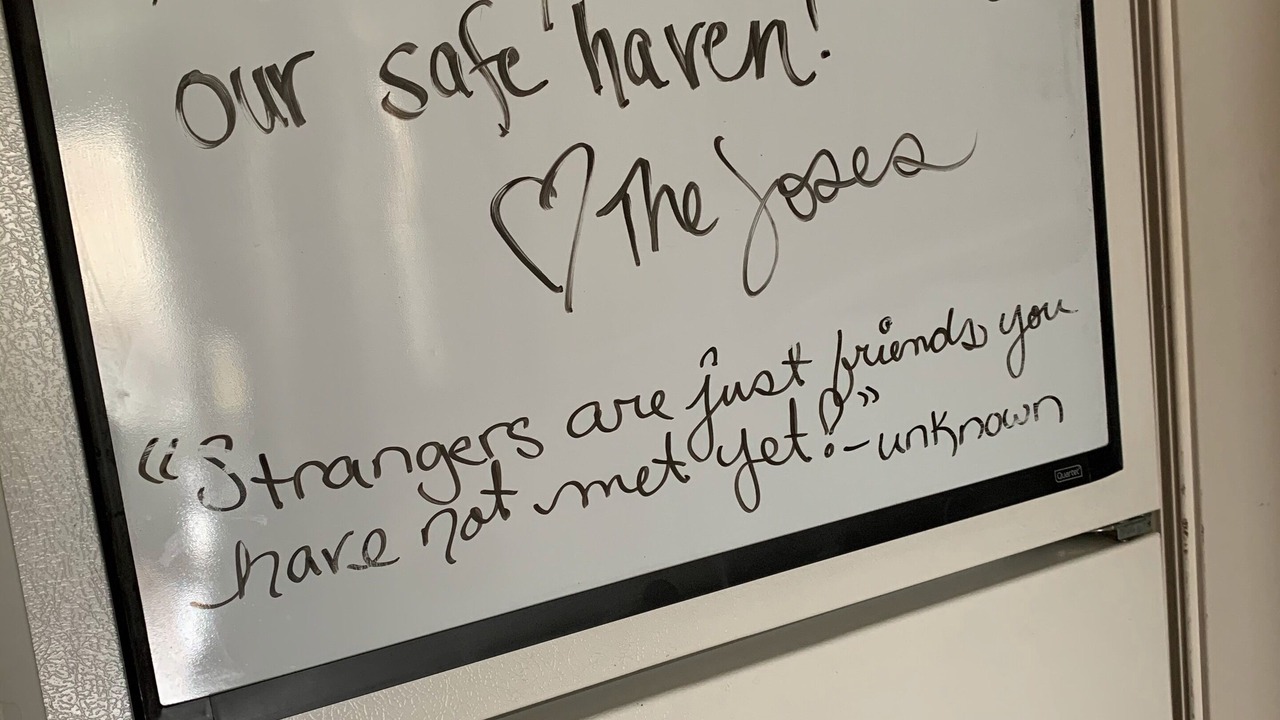 our safe haven!
♡ The Joses
“Strangers are just friends you
have not met yet!” - unknown
Quartet